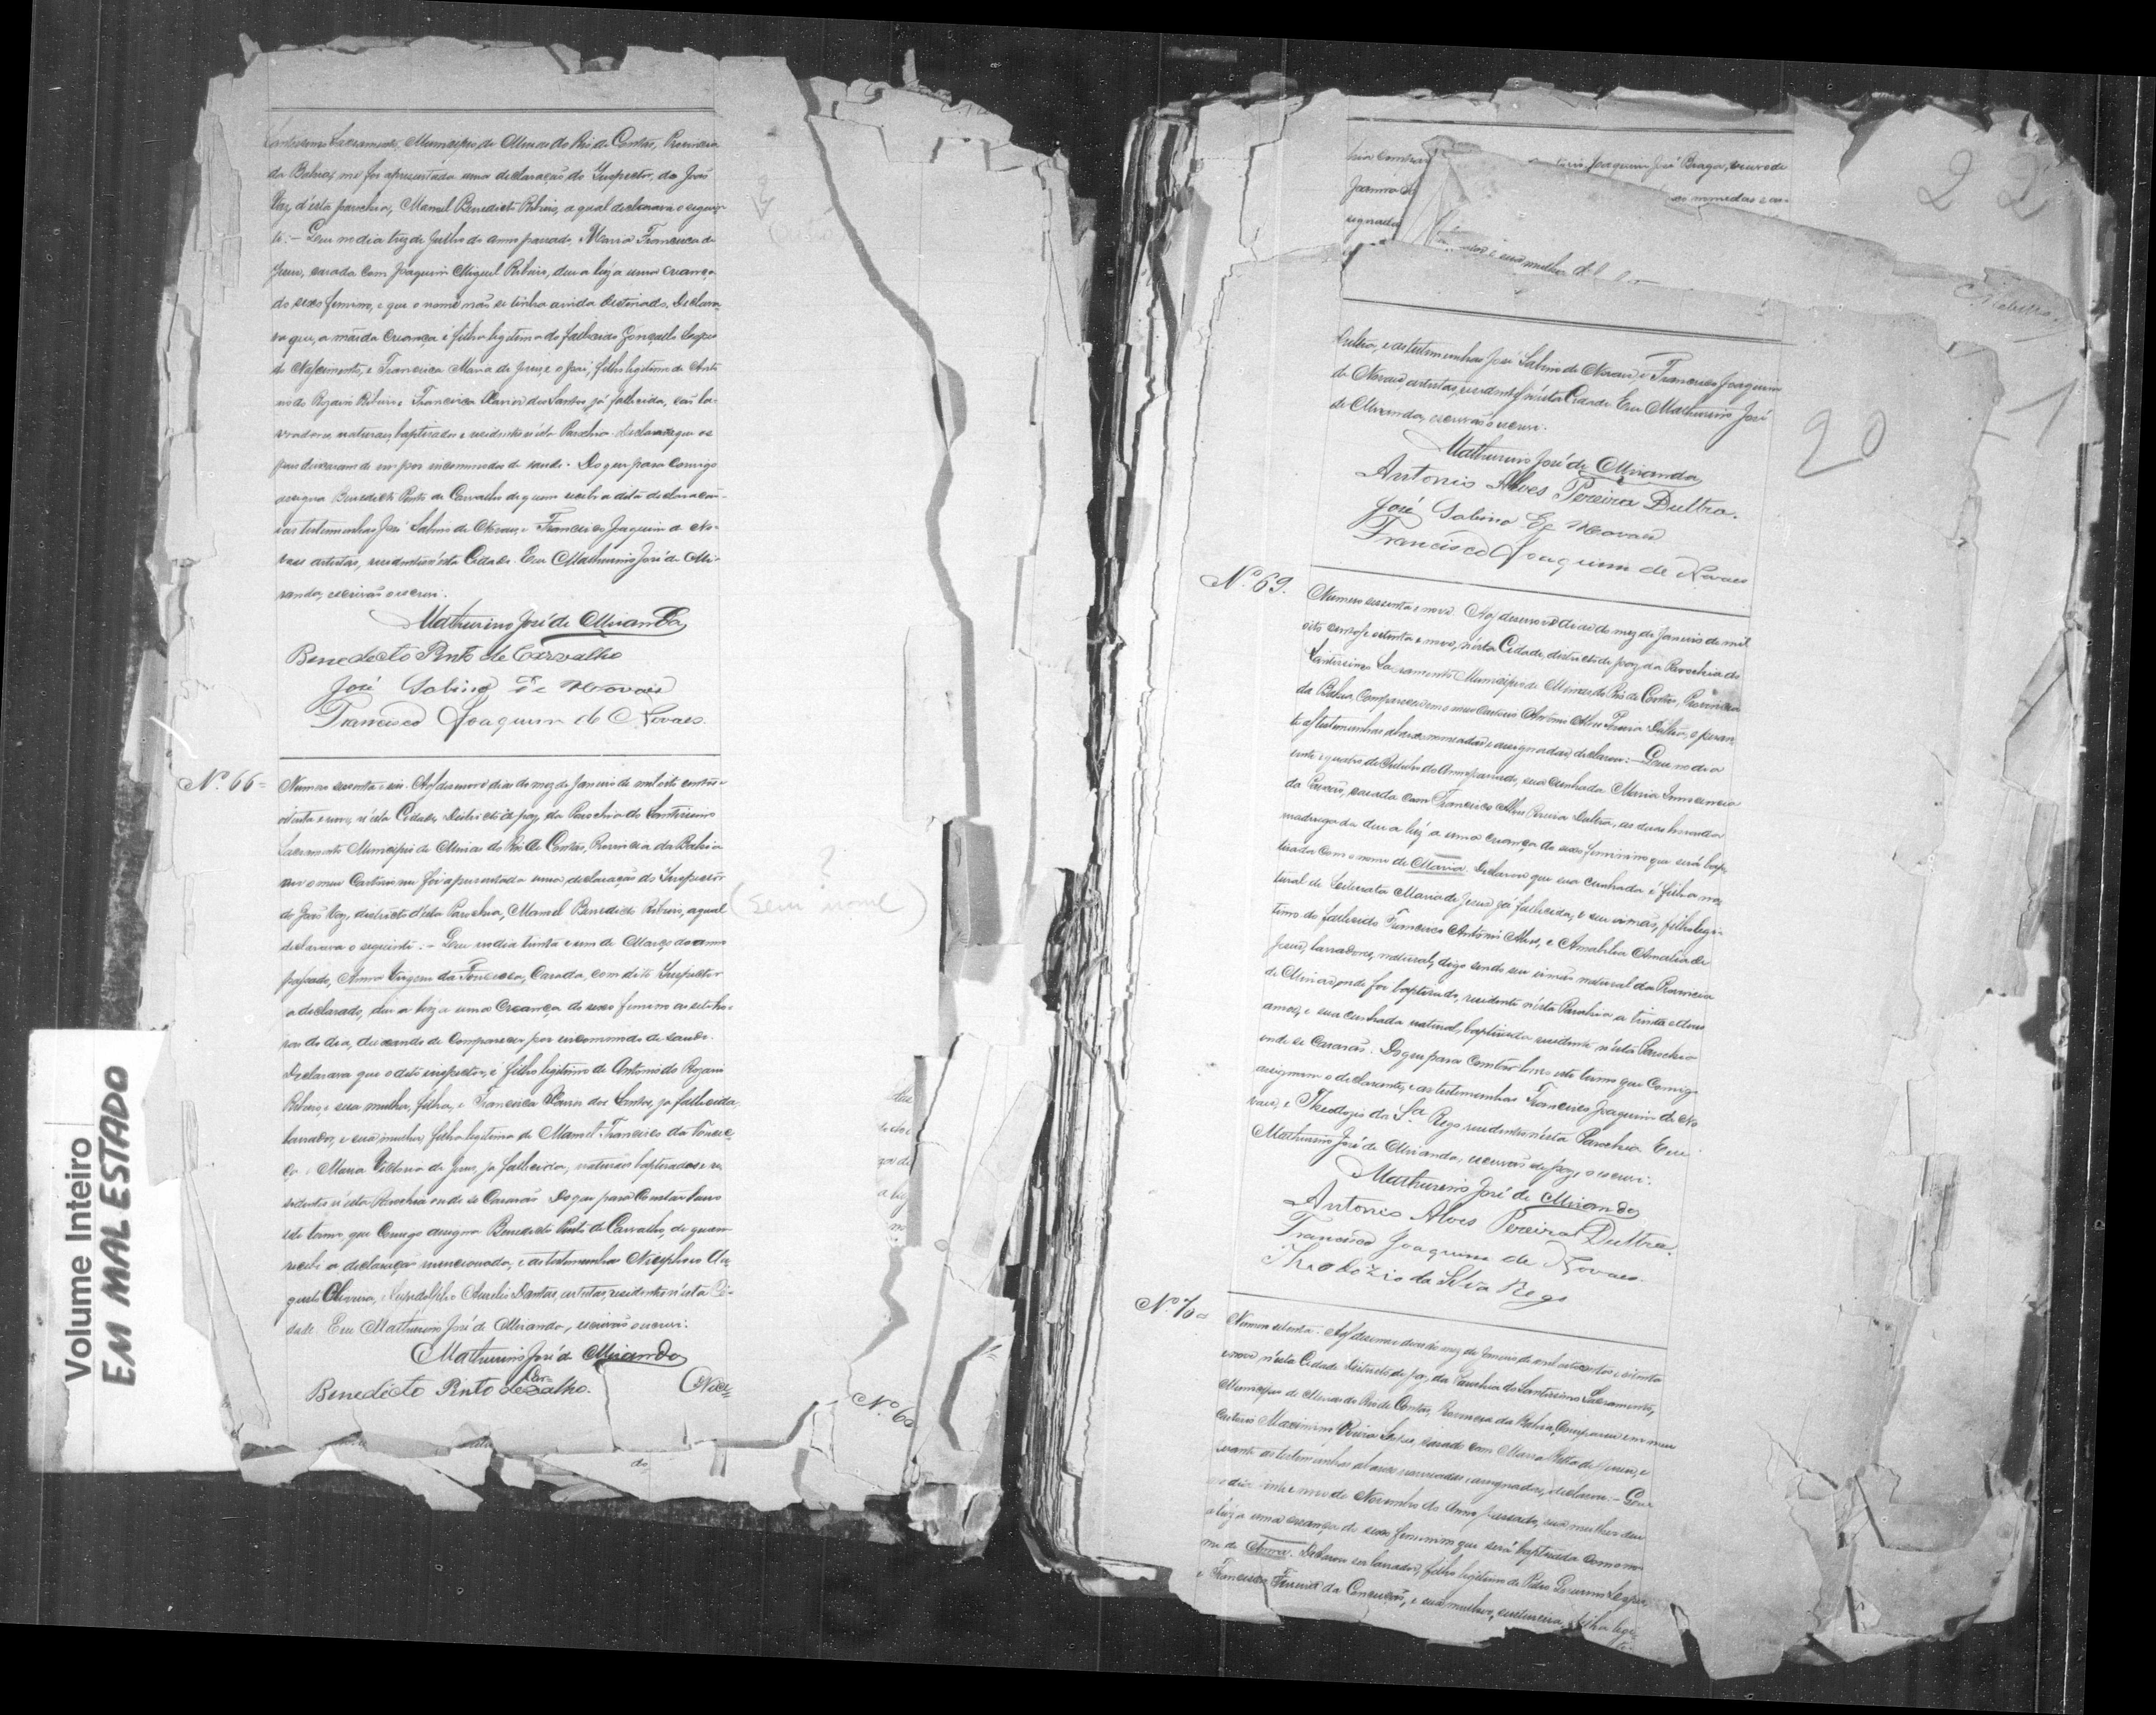 Santissimo Sacramento, Municipio de Minas do Rio de Contas, Provincia
da Bahia, me foi apresentada uma declaração do Inspector, do João
Vaz, d'esta parochia, Manoel Benedicto Ribeiro, a qual declarava o seguin-
te: - Que no dia trez de Julho do anno passado, Maria Francisca de
Jesus, casada com Joaquim Miguel Ribeiro, deu a luz a uma creança
do sexo feminino, e que o nome não se tinha ainda destinado. Declara-
va que, a mãi da creança é filha legitima do fallecido Gonçallo
do Nascimento, e Francisca Maria de Jesus, e o pai, filho legitimo de Anto-
nio do Rozario Ribeiro e Francisca dos Santos já fallecida, são la-
vradores, naturaes, baptizados e residentes n'esta Parochia. Declara que os
pais deixaram de vir por encommodos de saude. Do que para comigo
assigna Benedicto Pinto de Carvalho de quem recebi a dita declaração
e as testemunhas José Sabino de Novaes, e Francisco Joaquim de No-
vaes artistas, residentes n'esta Cidade. Eu Mathurino José de Mi-
randa, escrivão o escrevi.
Mathurino José de Miranda
Benedicto Pinto de Carvalho
José Sabino de Novaes
Francisco Joaquim de Novaes
Nº 66 =
Numero sessenta e seis. Aos desenove dias do mez de Janeiro de mil oito centos e
oitenta e nove, n'esta Cidade, Districto de paz da Parochia do Santissimo
Sacramento Municipio de Minas do Rio de Contas, Provincia da Bahia
em o meu Cartorio me foi apresentada uma declaração do Inspector
do João Vaz, districto d'esta Parochia, Manoel Benedicto Ribeiro, a qual
declarava o seguinte: - Que no dia trinta e um de Março do anno
passado, Anna Virgem da Fonceca, Casada, com dito Inspector
o declarado, deu a luz a uma Creança do sexo feminino as sete ho-
ras do dia, deixando de Comparecer, por encommodo de saude.
Declarava que o dito inspector, é filho legitimo de Antonio do Rozario
Ribeiro, e sua mulher, filha, e Francisca dos Santos, ja fallecida,
lavrador, e sua mulher filha legitima de Manoel Francisco da Fonce-
ca e Maria Victoria de Jesus, ja fallecida, naturaes baptizados e re-
sidentes n'esta Parochia onde se Casarão. Do que para Constar lavro
este termo, que Comigo assigna Benedicto Pinto de Carvalho, de quem
recebi a declaração mencionada, e as testemunhas Nicephoro Au-
gusto Oliveira, e Aurelio Dantas, artistas, residentes n'esta Ci-
dade. Eu Mathurino José de Miranda, escrivão o escrevi.
Mathurino José de Miranda
Benedicto Pinto de Carvalho.
Nice-
Nº 6
?
(sem nome)
Volume Inteiro
EM MAL ESTADO
22
Joaquim José Braga, viuvo de
nomeadas e as-
signadas
e sua mulher
20
1
Dultra, e as testemunhas José Sabino de Novaes, e Francisco Joaquim
de Novaes, artistas, residentes n'esta Cidade. Eu Mathurino José
de Miranda, escrivão o escrevi.
Mathurino José de Miranda
Antonio Alves Pereira Dultra.
José Sabino de Novaes
Francisco Joaquim de Novaes
Nº 69.
Numero sessenta e nove. Aos desenove dias do mez de Janeiro de mil
oito centos e oitenta e nove, n'esta Cidade, districto de paz da Parochia do
Santissimo Sacramento Municipio de Minas do Rio de Contas, Provincia
da Bahia, Compareceu em o meu Cartorio Antonio Alves Pereira Dultra, e peran-
te as testemunhas abaixo nomeadas e assignadas, declarou: - Que no dia
vinte e quatro de Outubro do Anno passado, sua cunhada Maria Innocencia
da , casada com Francisco Alves Pereira Dultra, as duas horas da
madrugada deu a luz a uma creança do sexo feminino que será bap-
tisada com o nome de Maria. Declarou que sua cunhada é filha na-
tural de Maria de Jesus já fallecida, e seu irmão, filho legi-
timo do fallecido Francisco Antonio Alves, e Amabilia Amalia de
Jesus, lavradores, naturaes, digo sendo seu irmão natural da Provincia
de Minas, onde foi baptizado, residente n'esta Parochia a trinta e dous
annos, e sua cunhada natural, baptizada residente n'esta Parochia
onde se Casarão. Do que para Constar lavro este termo que Comigo
assignam o declarante, e as testemunhas Francisco Joaquim de No-
vaes, e Theodozio da Sª Rego residentes n'esta Parochia. Eu
Mathurino José de Miranda, escrivão de paz, o escrevi.
Mathurino José de Miranda
Antonio Alves Pereira Dultra.
Francisco Joaquim de Novaes.
Theodozio da Silva Rego
Nº 70 =
Numero setenta. Aos desenove dias do mez de Janeiro de mil oito centos e oitenta
e nove n'esta Cidade Districto de paz, da Parochia do Santissimo Sacramento,
Municipio de Minas do Rio de Contas, Provincia da Bahia, Compareceu em meu
Cartorio Maximino , casado com Maria Ritta de Jesus, e
perante as testemunhas abaixo nomeadas e assignadas, declarou: - Que
no dia vinte e nove de Novembro do Anno passado, sua mulher deu
a luz a uma creança do sexo feminino que será baptizada com o no-
me de Anna. Declarou ser lavrador, filho legitimo de Pedro
e Francisca da Conceição, e sua mulher, costureira, filha legi-